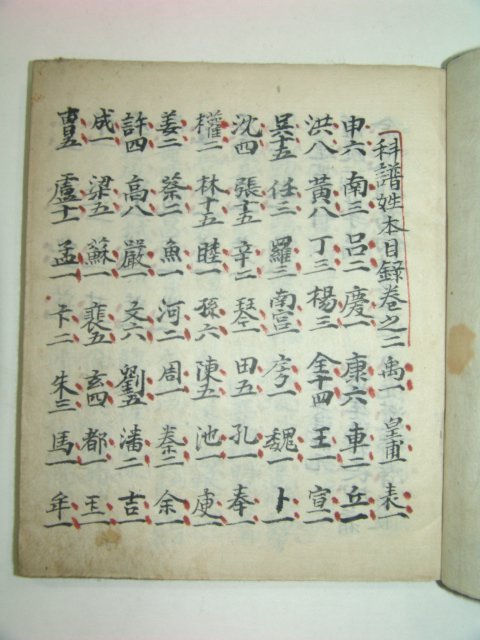 一科譜姓本目錄卷之二 禹一 皇甫一 表一
申六 南三 呂二 慶一 康六 車二 丘一
洪八 黃八 丁三 楊三 全十四 王一 宣一
吳十五 任三 羅三 南宮一 魏一 卜一
沈四 張十五 辛二 琴一 田五 孔一 奉一
權二 林十五 睦一 孫六 陳五 池一 庾一
姜三 蔡二 魚一 河二 周一 秦二 余一
許四 高八 嚴一 文六 劉五 潘二 吉一
成一 梁五 蘇一 裵五 玄四 都一 玉一
曺五 盧十一 孟一 卞二 朱三 馬一 牟一